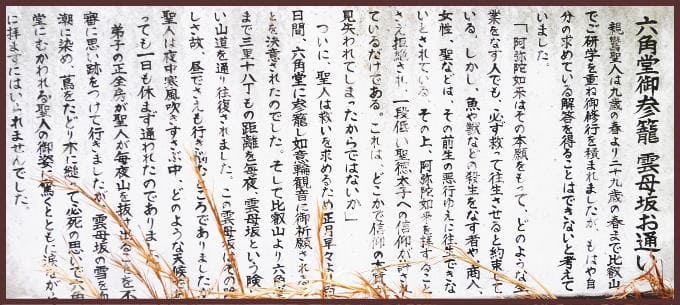 六角堂御参籠 雲母坂お通い
親鸞聖人は九歳の春より二十九歳の春まで比叡山
でご研学を重ね御修行を積まれましたが、もはや自
分の求めている解答を得ることはできないと考えて
いました。
「阿弥陀如来はその本願をもって、どのような
業をなす人でも、必ず救って往生させると約束して
いる。しかし、魚や獣などの殺生をなす者や、商人、
女性、聖などは、その前生の悪行ゆえに往生できな
いとされている。その上、阿弥陀如来を拝すること
さえ拒絶され、一段低い聖徳太子への信仰が許され
ているだけである。これは、どこかで信仰の
見失われてしまったからではないか」
ついに、聖人は救いを求めるため正月早々より
日間、六角堂に参籠し如意輪観音に御祈願される
とを決意されたのでした。そして比叡山より六角
まで三里十八丁もの距離を毎夜、雲母坂という険
い山道を通り往復されました。この雲母坂はその
しさ故、昼でさえも行き悩むところでありました
聖人は夜中寒風吹きすさぶ中、どのような天候
っても一日も休まず通われたのでありま
弟子の正全房が聖人が毎夜山を抜け出ることを不
審に思い跡をつけて行きましたが、雲母坂の雪を血
潮に染め、蔦をたどり木に縋って必死の思いで六角
堂にむかわれる聖人の御姿に驚くとともに涙ながら
に拝まずにはいられませんでした。